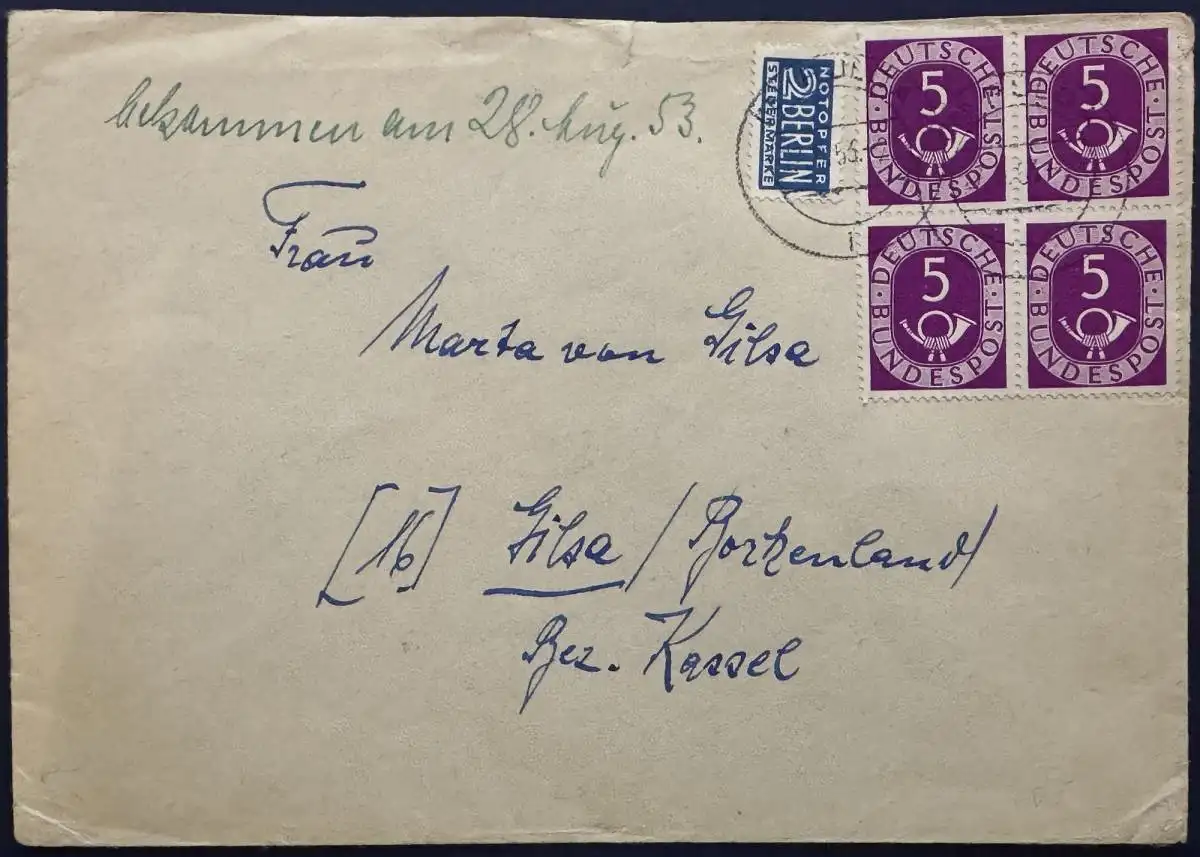 bekommen am 28. Aug. 53.
NOTOPFER
2 BERLIN
STEUERMARKE
DEUTSCHE BUNDESPOST 5
DEUTSCHE BUNDESPOST 5
DEUTSCHE BUNDESPOST 5
DEUTSCHE BUNDESPOST 5
Frau
Marta von Gilsa
[16] Gilsa / Borkenland
Bez. Kassel